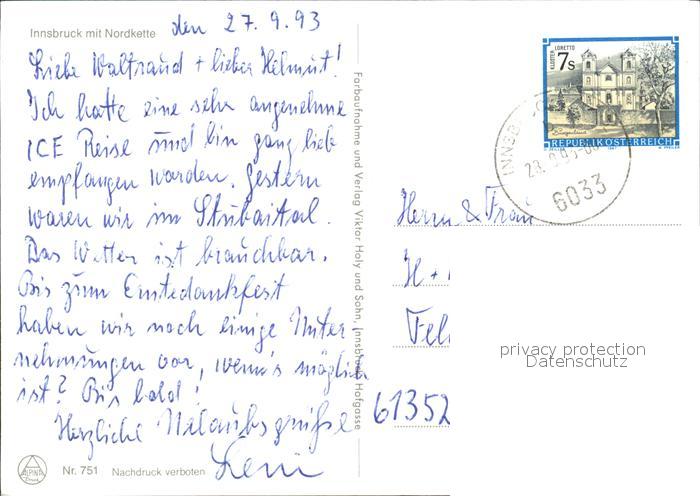 Innsbruck mit Nordkette
den 27.9.93
Liebe Waltraud + lieber Helmut!
Ich hatte eine sehr angenehme
ICE Reise und bin ganz lieb
empfangen worden. Gestern
waren wir im Stubaital.
Das Wetter ist brauchbar.
Bis zum Erntedankfest
haben wir noch einige Unter-
nehmungen vor, wenn's möglich
ist? Bis bald!
Herzliche Urlaubsgrüße
Leni
Nr. 751 Nachdruck verboten
ALPINA
Farbaufnahme und Verlag Viktor Holy und Sohn, Innsbruck, Hofgasse
KLOSTER LORETTO
7s
REPUBLIK ÖSTERREICH
6033
Herrn & Frau
H +
61352
privacy protection
Datenschutz